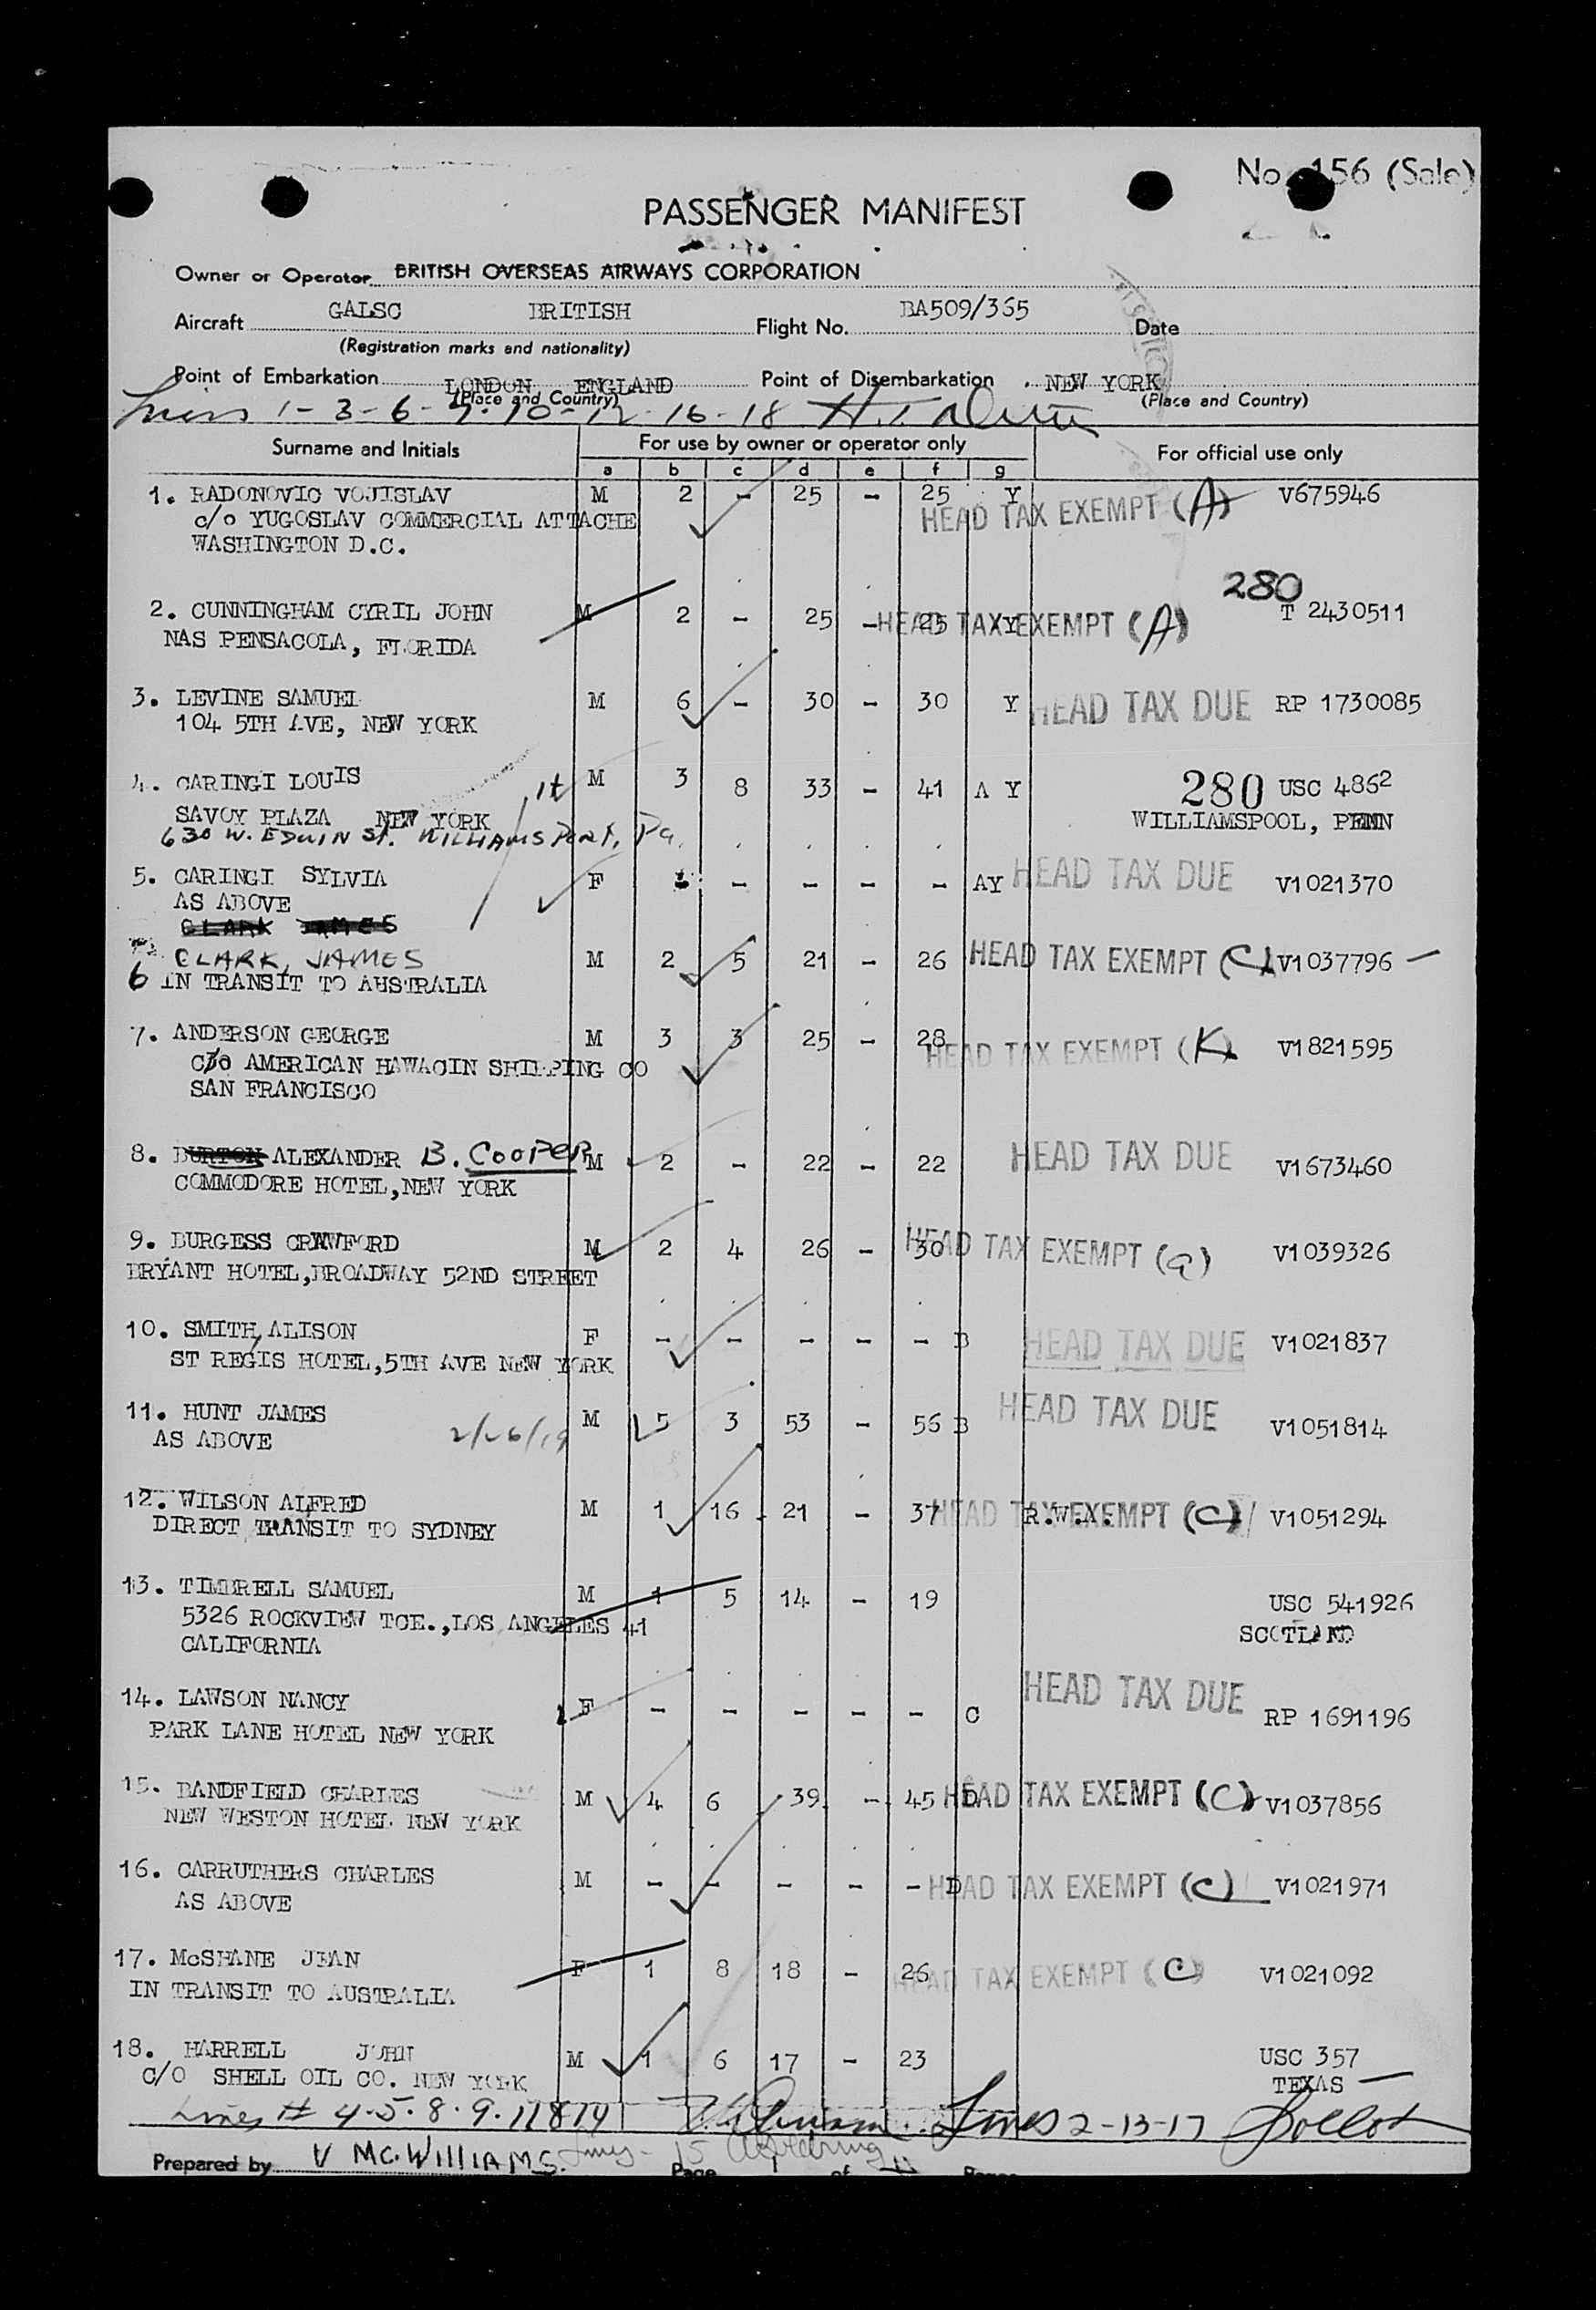 No. 156 (Sale)
PASSENGER MANIFEST
Owner or Operator BRITISH OVERSEAS AIRWAYS CORPORATION
Aircraft GALSC BRITISH Flight No. BA509/365 Date
(Registration marks and nationality)
Point of Embarkation LONDON ENGLAND Point of Disembarkation NEW YORK
(Place and Country) (Place and Country)
1-3-6-7-10-12-16-18
Surname and Initials For use by owner or operator only For official use only
a b c d e f g
1. RADONOVIC VOJISLAV M 2 - 25 - 25 Y HEAD TAX EXEMPT (A) V675946
c/o YUGOSLAV COMMERCIAL ATTACHE
WASHINGTON D.C.
280
2. CUNNINGHAM CYRIL JOHN M 2 - 25 - 25 Y HEAD TAX EXEMPT (A) T 2430511
NAS PENSACOLA, FLORIDA
3. LEVINE SAMUEL M 6 - 30 - 30 Y HEAD TAX DUE RP 1730085
104 5TH AVE, NEW YORK
4. CARINGI LOUIS M 3 8 33 - 41 A Y 280 USC 4862
SAVOY PLAZA NEW YORK WILLIAMSPOOL, PENN
630 W. EDWIN St. WILLIAMSPORT, Pa.
5. CARINGI SYLVIA F - - - - AY HEAD TAX DUE V1021370
AS ABOVE
CLARK JAMES
CLARK, JAMES M 2 5 21 - 26 HEAD TAX EXEMPT (C) V1037796
6 IN TRANSIT TO AUSTRALIA
7. ANDERSON GEORGE M 3 3 25 - 28 HEAD TAX EXEMPT (K) V1821595
C/o AMERICAN HAWACIN SHIPPING CO
SAN FRANCISCO
8. BURTON ALEXANDER B. COOPER M 2 - 22 - 22 HEAD TAX DUE V1673460
COMMODORE HOTEL, NEW YORK
9. BURGESS CRAWFORD M 2 4 26 - 30 HEAD TAX EXEMPT (a) V1039326
BRYANT HOTEL, BROADWAY 52ND STREET
10. SMITH, ALISON F - - - - - B HEAD TAX DUE V1021837
ST REGIS HOTEL, 5TH AVE NEW YORK
11. HUNT JAMES M 5 3 53 - 56 B HEAD TAX DUE V1051814
AS ABOVE
12. WILSON ALFRED M 1 16 21 - 37 HEAD TAX EXEMPT (C) V1051294
DIRECT TRANSIT TO SYDNEY
13. TIMBRELL SAMUEL M 1 5 14 - 19 USC 541926
5326 ROCKVIEW TCE., LOS ANGELES 41 SCOTLAND
CALIFORNIA
14. LAWSON NANCY F - - - - - C HEAD TAX DUE RP 1691196
PARK LANE HOTEL NEW YORK
15. BANDFIELD CHARLES M 4 6 39 - 45 D HEAD TAX EXEMPT (C) V1037856
NEW WESTON HOTEL NEW YORK
16. CARRUTHERS CHARLES M - - - - - D HEAD TAX EXEMPT (C) V1021971
AS ABOVE
17. McSHANE JEAN F 1 8 18 - 26 HEAD TAX EXEMPT (C) V1021092
IN TRANSIT TO AUSTRALIA
18. HARRELL JOHN M 1 6 17 - 23 USC 357
C/O SHELL OIL CO. NEW YORK TEXAS
Lines # 4-5-8-9-11 & 14 Lines 2-13-17
Prepared by V McWILLIAMS. Lines - 15 Page 1 of Pages